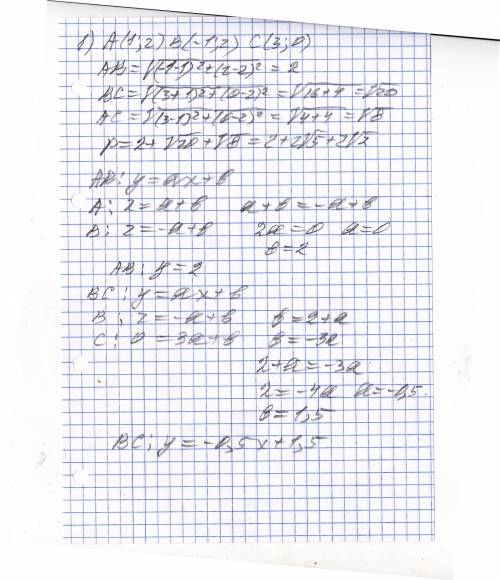 1) A(1; 2) B(-1; 2) C(3; 0)
AB = √(-1-1)² + (2-2)² = 2
BC = √(3+1)² + (0-2)² = √16+4 = √20
AC = √(3-1)² + (0-2)² = √4+4 = √8
p = 2 + √20 + √8 = 2 + 2√5 + 2√2
AB: y = ax + b
A: 2 = a + b a + b = -a + b
B: 2 = -a + b 2a = 0 a = 0
b = 2
AB: y = 2
BC: y = ax + b
B: 2 = -a + b b = 2 + a
C: 0 = 3a + b b = -3a
2 + a = -3a
2 = -4a a = -0,5.
b = 1,5
BC: y = -0,5x + 1,5